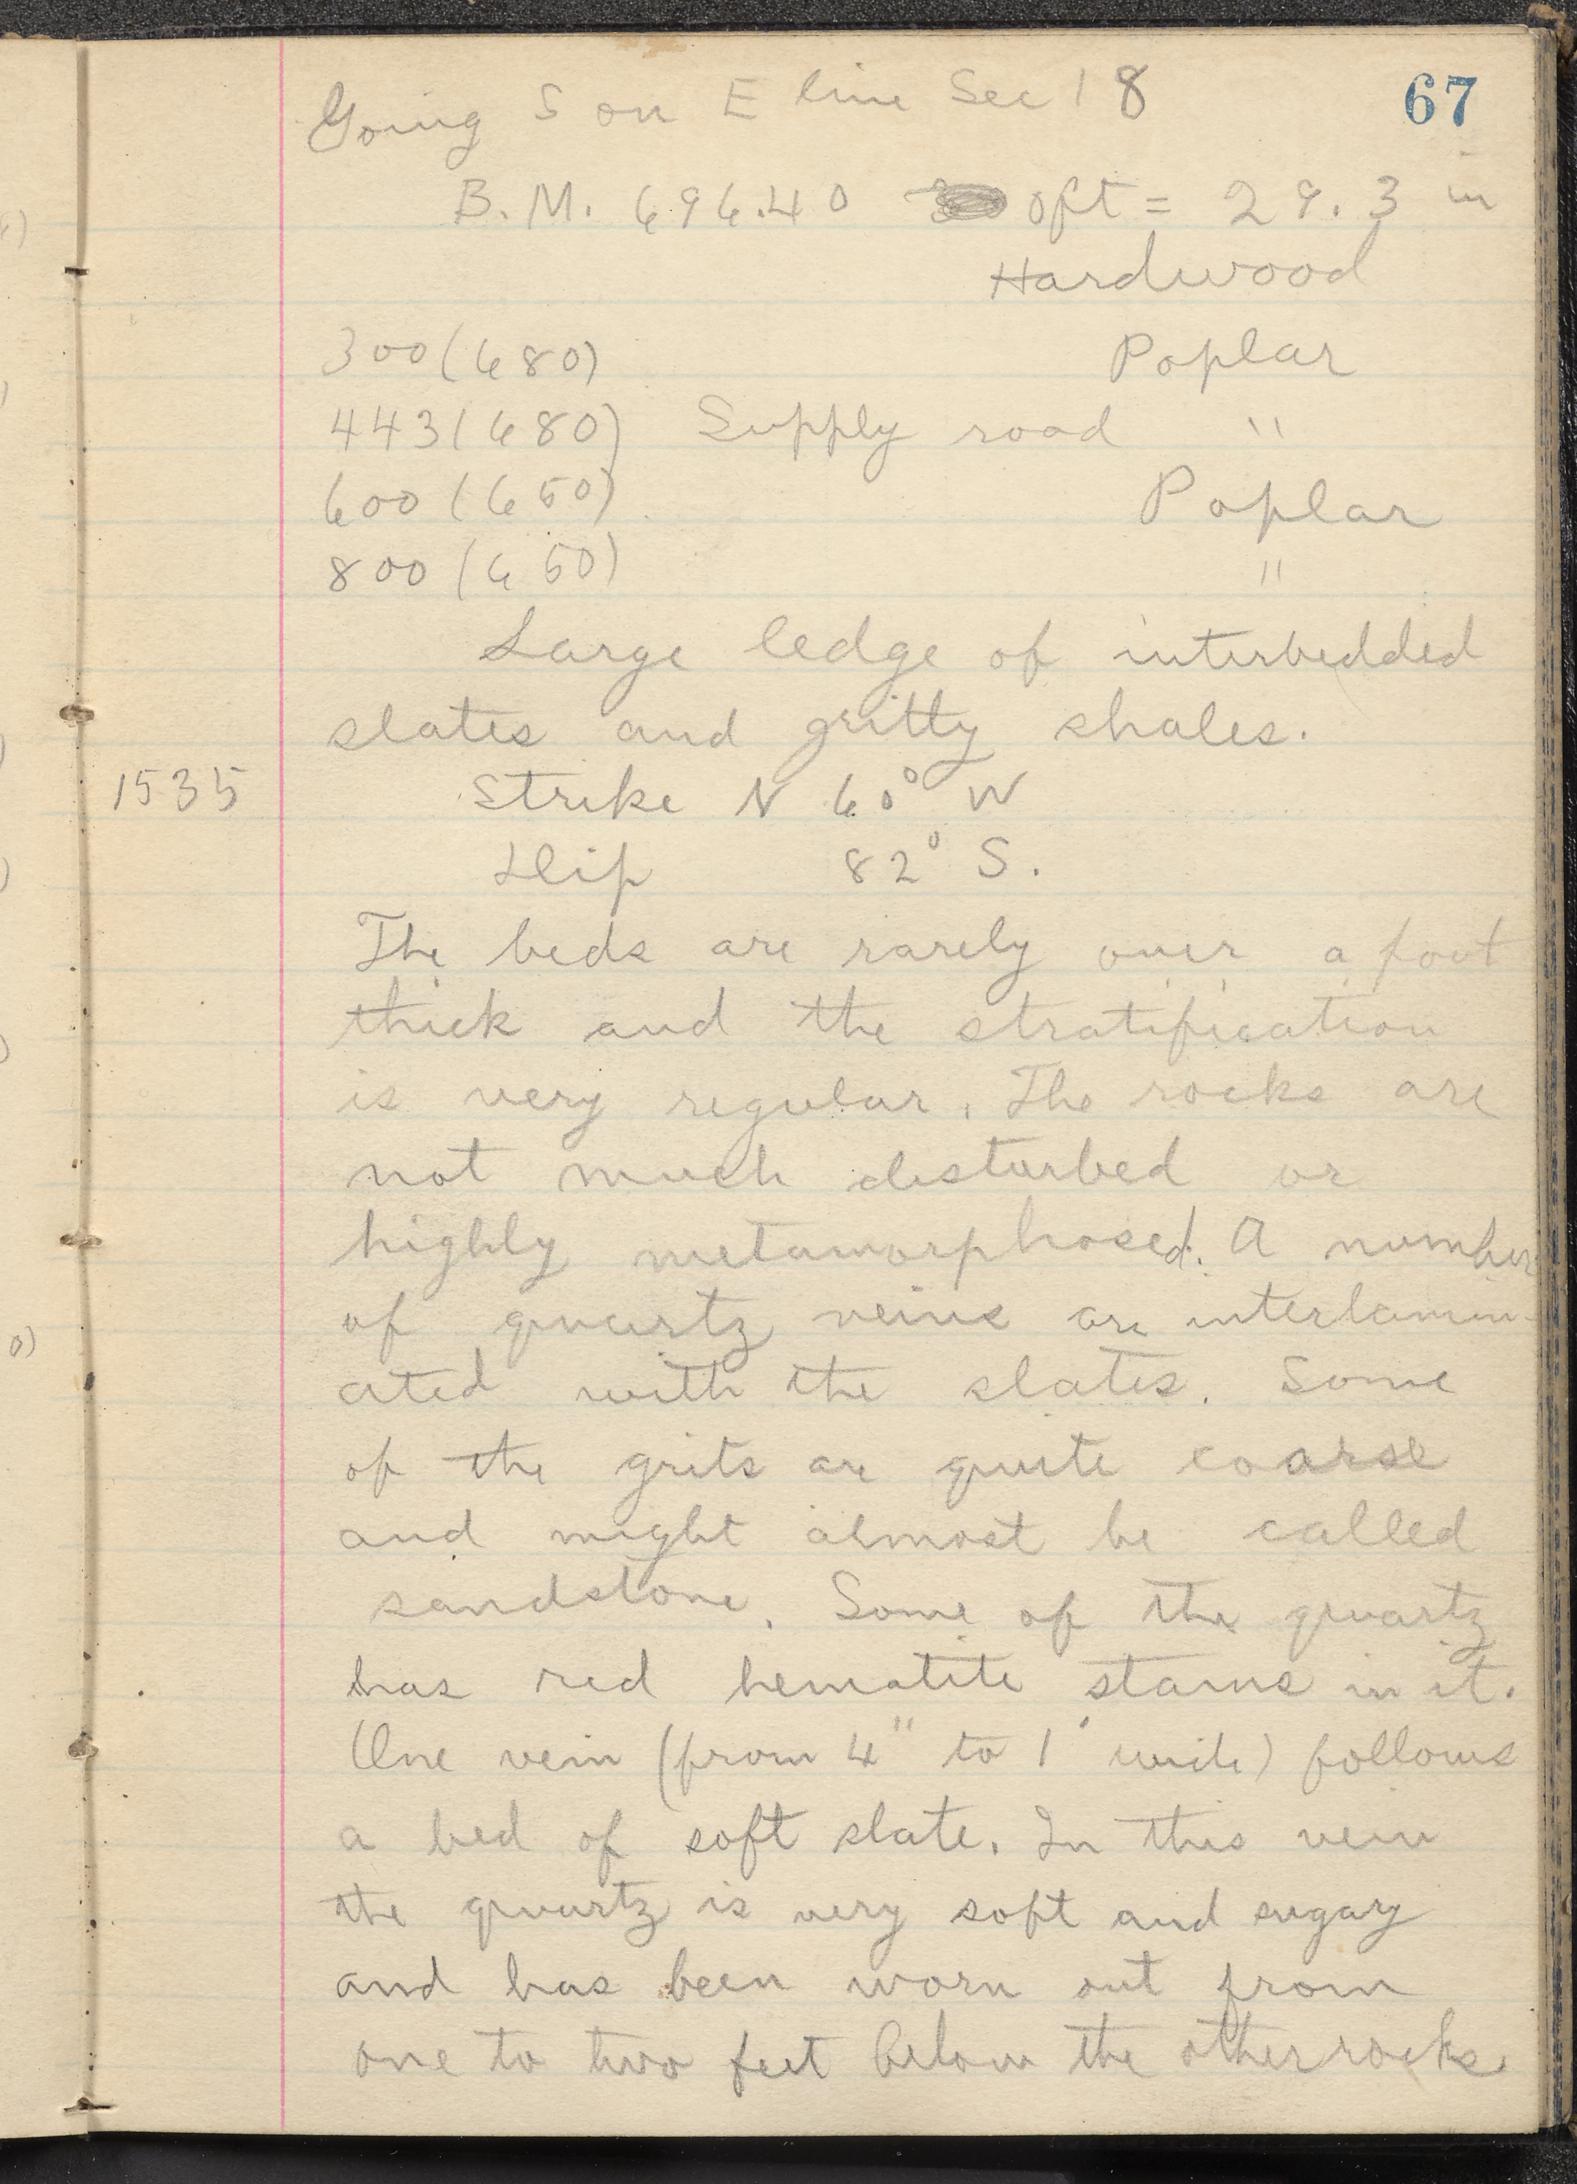 67
Going S on E line Sec 18
B.M. 696.40 0ft = 29.3 in
Hardwood
300 (680) Poplar
443 (680) Supply road "
600 (650) Poplar
800 (650) "
Large ledge of interbedded
slates and gritty shales.
1535 Strike N 60° W
Dip 82° S.
The beds are rarely over a foot
thick and the stratification
is very regular. The rocks are
not much disturbed or
highly metamorphosed. A number
of quartz veins are interlamin-
ated with the slates. Some
of the grits are quite coarse
and might almost be called
sandstone. Some of the quartz
has red hematite stains in it.
One vein (from 4" to 1' wide) follows
a bed of soft slate. In this vein
the quartz is very soft and sugary
and has been worn out from
one to two feet below the other rocks.